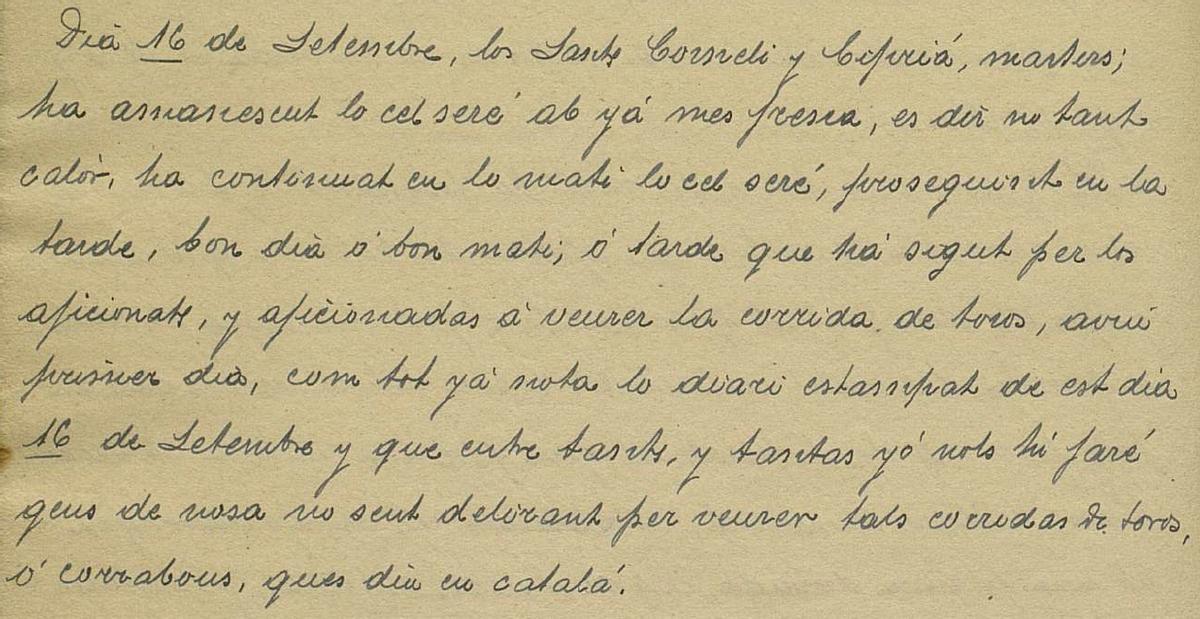 Dià 16 de Setembre, los Sants Corneli y Cipriá, marters;
ha amanescut lo cel seré ab yá mes fresca, es dir no tant
calòr, ha continuat en lo mati lo cel seré, proseguint en la
tarde, bon dià ó bon mati; ó tarde que há sigut per los
aficionats, y aficionadas á veurer la corrida de toros, avui
primer dià, com tot yá nota lo diari estampat de est dia
16 de Setembre y que entre tants, y tantas yó nols hi faré
gens de nosa no sent delirant per veurer tals corridas de toros,
ó corrabous, ques diu en catalá.